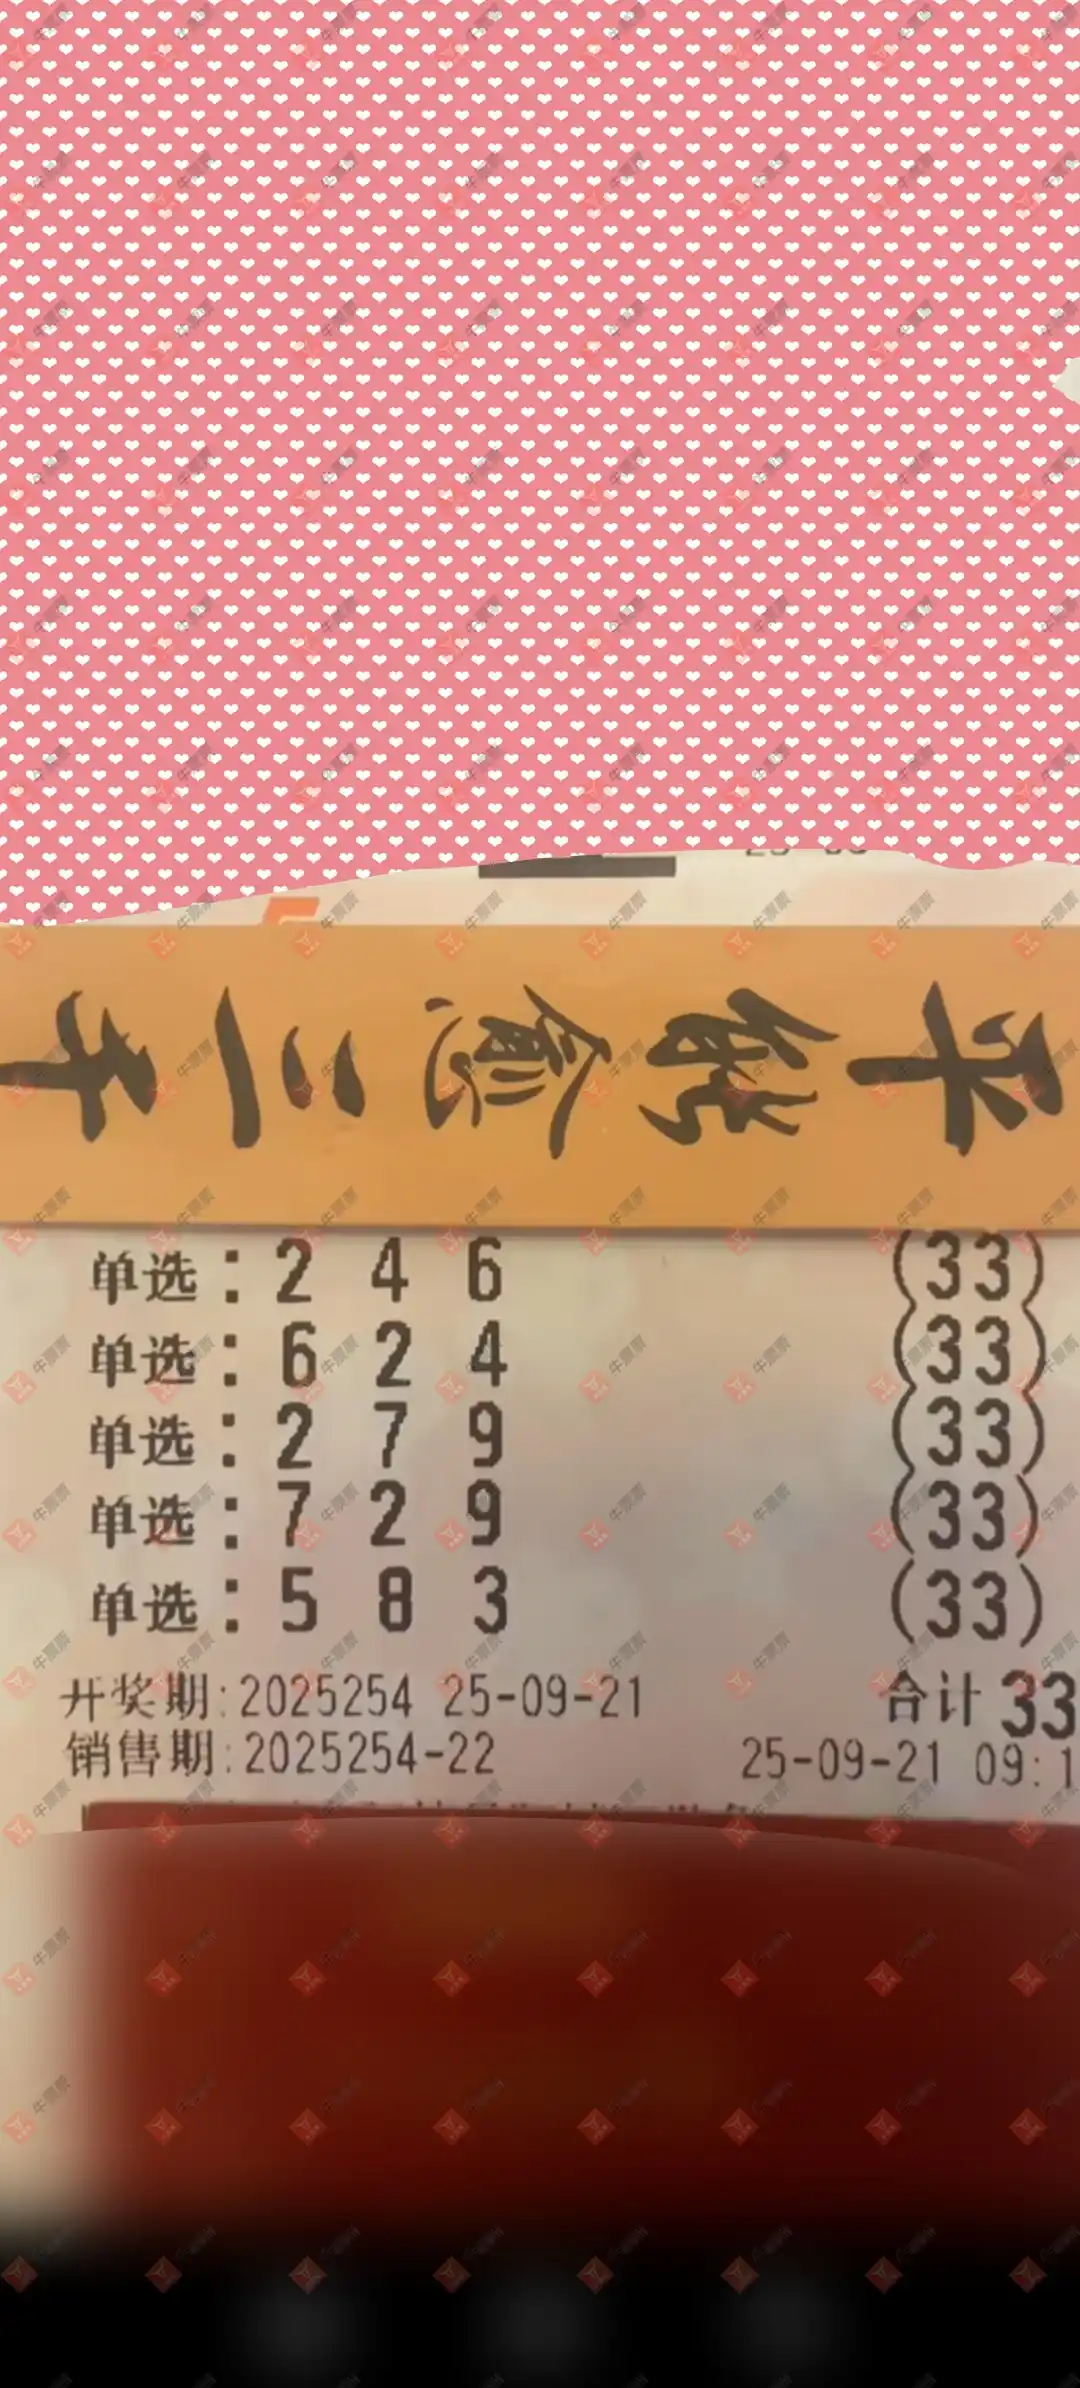 单选：2 4 6 (33)
单选：6 2 4 (33)
单选：2 7 9 (33)
单选：7 2 9 (33)
单选：5 8 3 (33)
开奖期:2025254 25-09-21 合计 33
销售期:2025254-22 25-09-21 09:1
牛票票